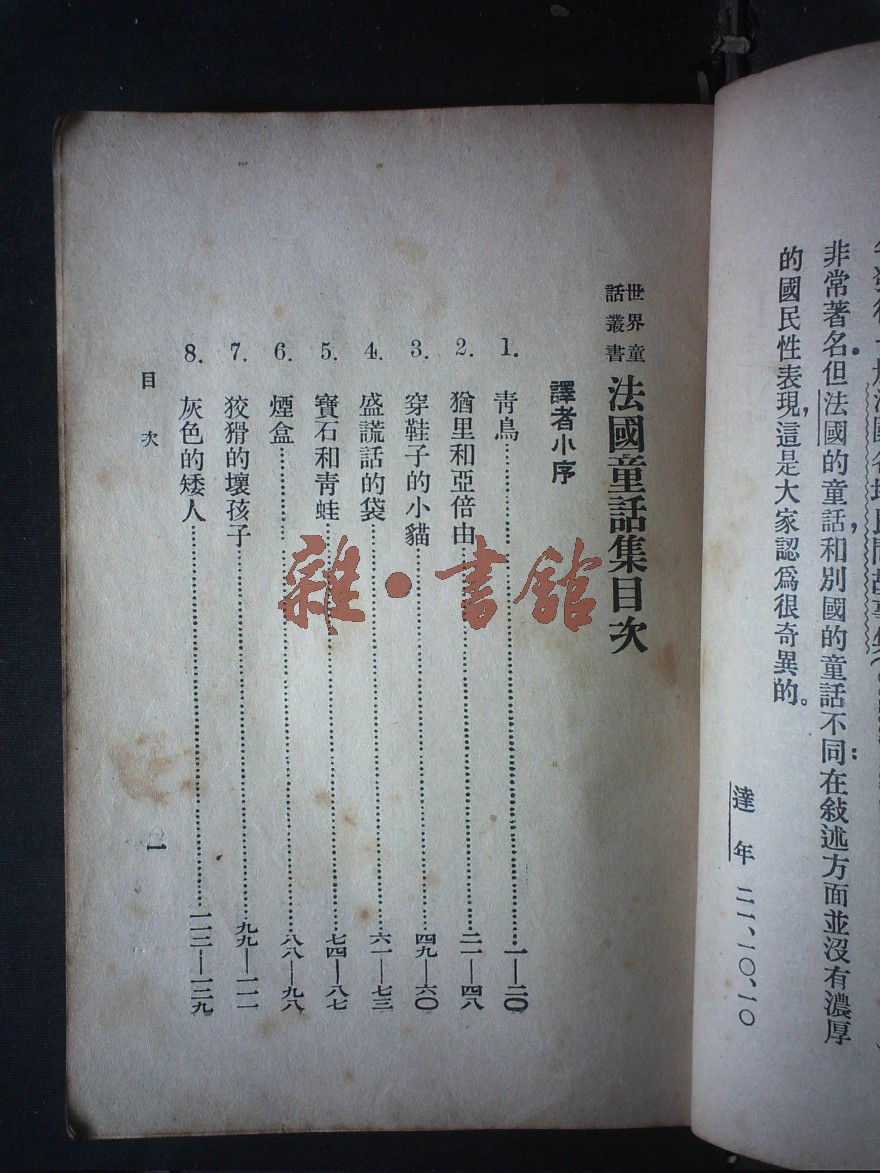 非常著名。但法國的童話，和別國的童話不同：在敍述方面並沒有濃厚
的國民性表現，這是大家認爲很奇異的。
達年 二一、一〇、一〇
世界童話叢書 法國童話集目次
譯者小序
1. 青鳥……一—二〇
2. 猶里和亞倍由……二一—四八
3. 穿鞋子的小貓……四九—六〇
4. 盛謊話的袋……六一—七三
5. 寶石和青蛙……七四—八七
6. 煙盒……八八—九八
7. 狡猾的壞孩子……九九—一一一
8. 灰色的矮人……一一三—一二九
目次 一
雜·書館